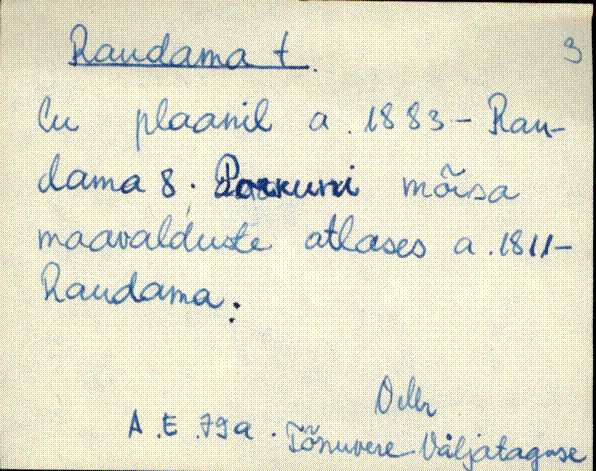 Raudama t.
3
Cu plaanil a. 1883 - Rau-
dama 8. Porkuni mõisa
maavalduste atlases a. 1811 -
Raudama.
A.E. 79a. Tõnuvere Väljataguse